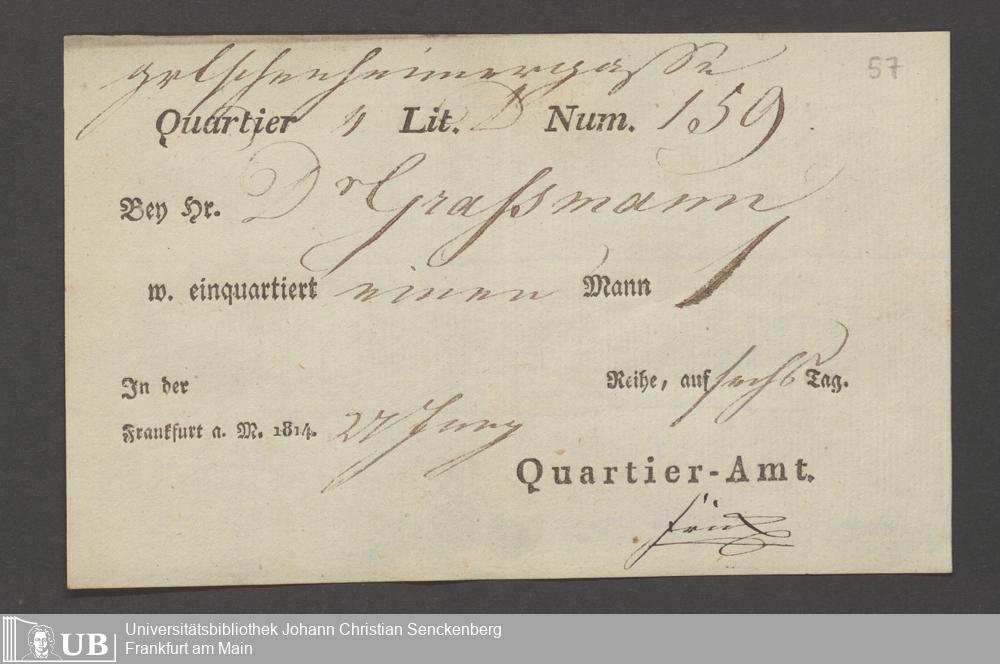 57
Quartier 4 Lit. D Num. 159
Bey Hr. Dr Grassmann
w. einquartiert einen Mann 1
In der Reihe, auf sechs Tag.
Frankfurt a. M. 1814. 27 Juny
Quartier-Amt.
UB Universitätsbibliothek Johann Christian Senckenberg
Frankfurt am Main